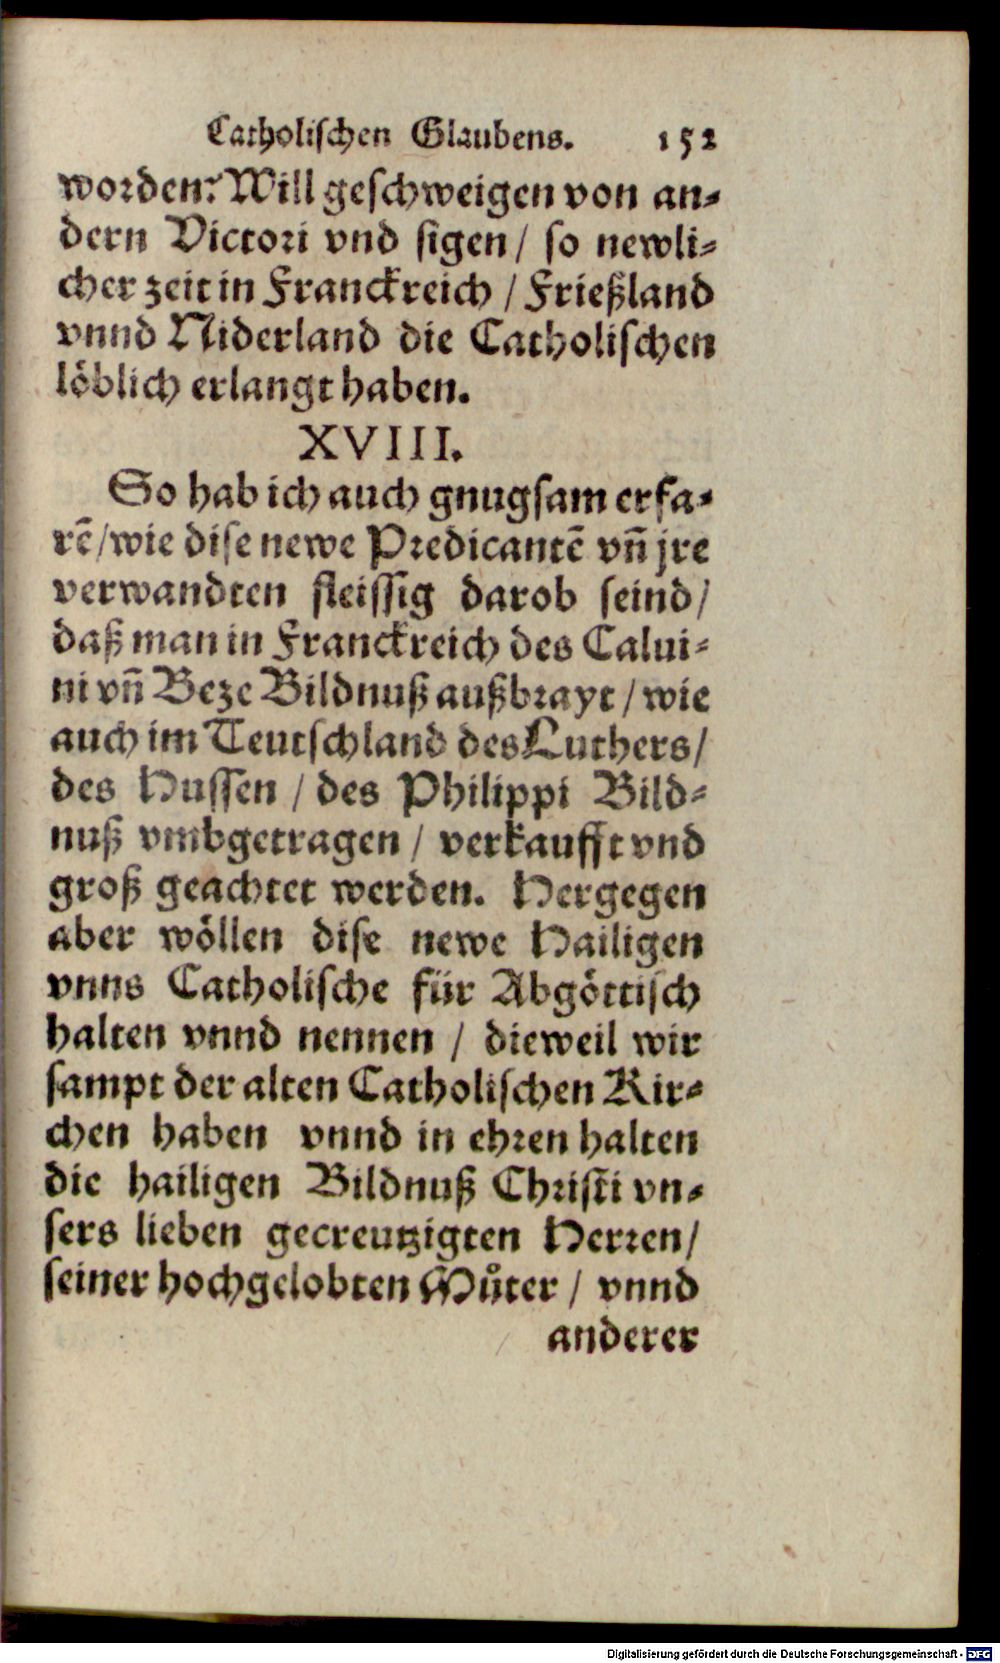 Catholischen Glaubens. 152
worden? Will geschweigen von an-
dern Victori vnd sigen / so newli-
cher zeit in Franckreich / Frießland
vnnd Niderland die Catholischen
löblich erlangt haben.
XVIII.
So hab ich auch gnugsam erfa-
rē / wie dise newe Predicantē vñ jre
verwandten fleissig darob seind /
daß man in Franckreich des Calui-
ni vñ Beze Bildnuß außbrayt / wie
auch im Teutschland des Luthers /
des Hussen / des Philippi Bild-
nuß vmbgetragen / verkaufft vnd
groß geachtet werden. Hergegen
aber wöllen dise newe Hailigen
vnns Catholische für Abgöttisch
halten vnnd nennen / dieweil wir
sampt der alten Catholischen Kir-
chen haben vnnd in ehren halten
die hailigen Bildnuß Christi vn-
sers lieben gecreutzigten Herren /
seiner hochgelobten Můter / vnnd
anderer
Digitalisierung gefördert durch die Deutsche Forschungsgemeinschaft - DFG